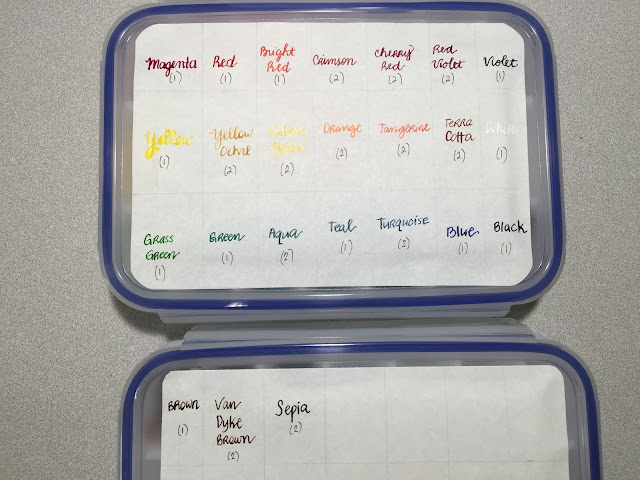 Magenta
(1)
Red
(1)
Bright
Red
(1)
Crimson
(2)
Cherry
Red
(2)
Red
Violet
(2)
Violet
(1)
Yellow
(1)
Yellow
Ochre
(2)
Yellow
(2)
Orange
(2)
Tangerine
(2)
Terra
Cotta
(2)
White
(1)
Grass
Green
(1)
Green
(1)
Aqua
(2)
Teal
(1)
Turquoise
(2)
Blue
(1)
Black
(1)
Brown
(1)
Van
Dyke
Brown
(2)
Sepia
(2)